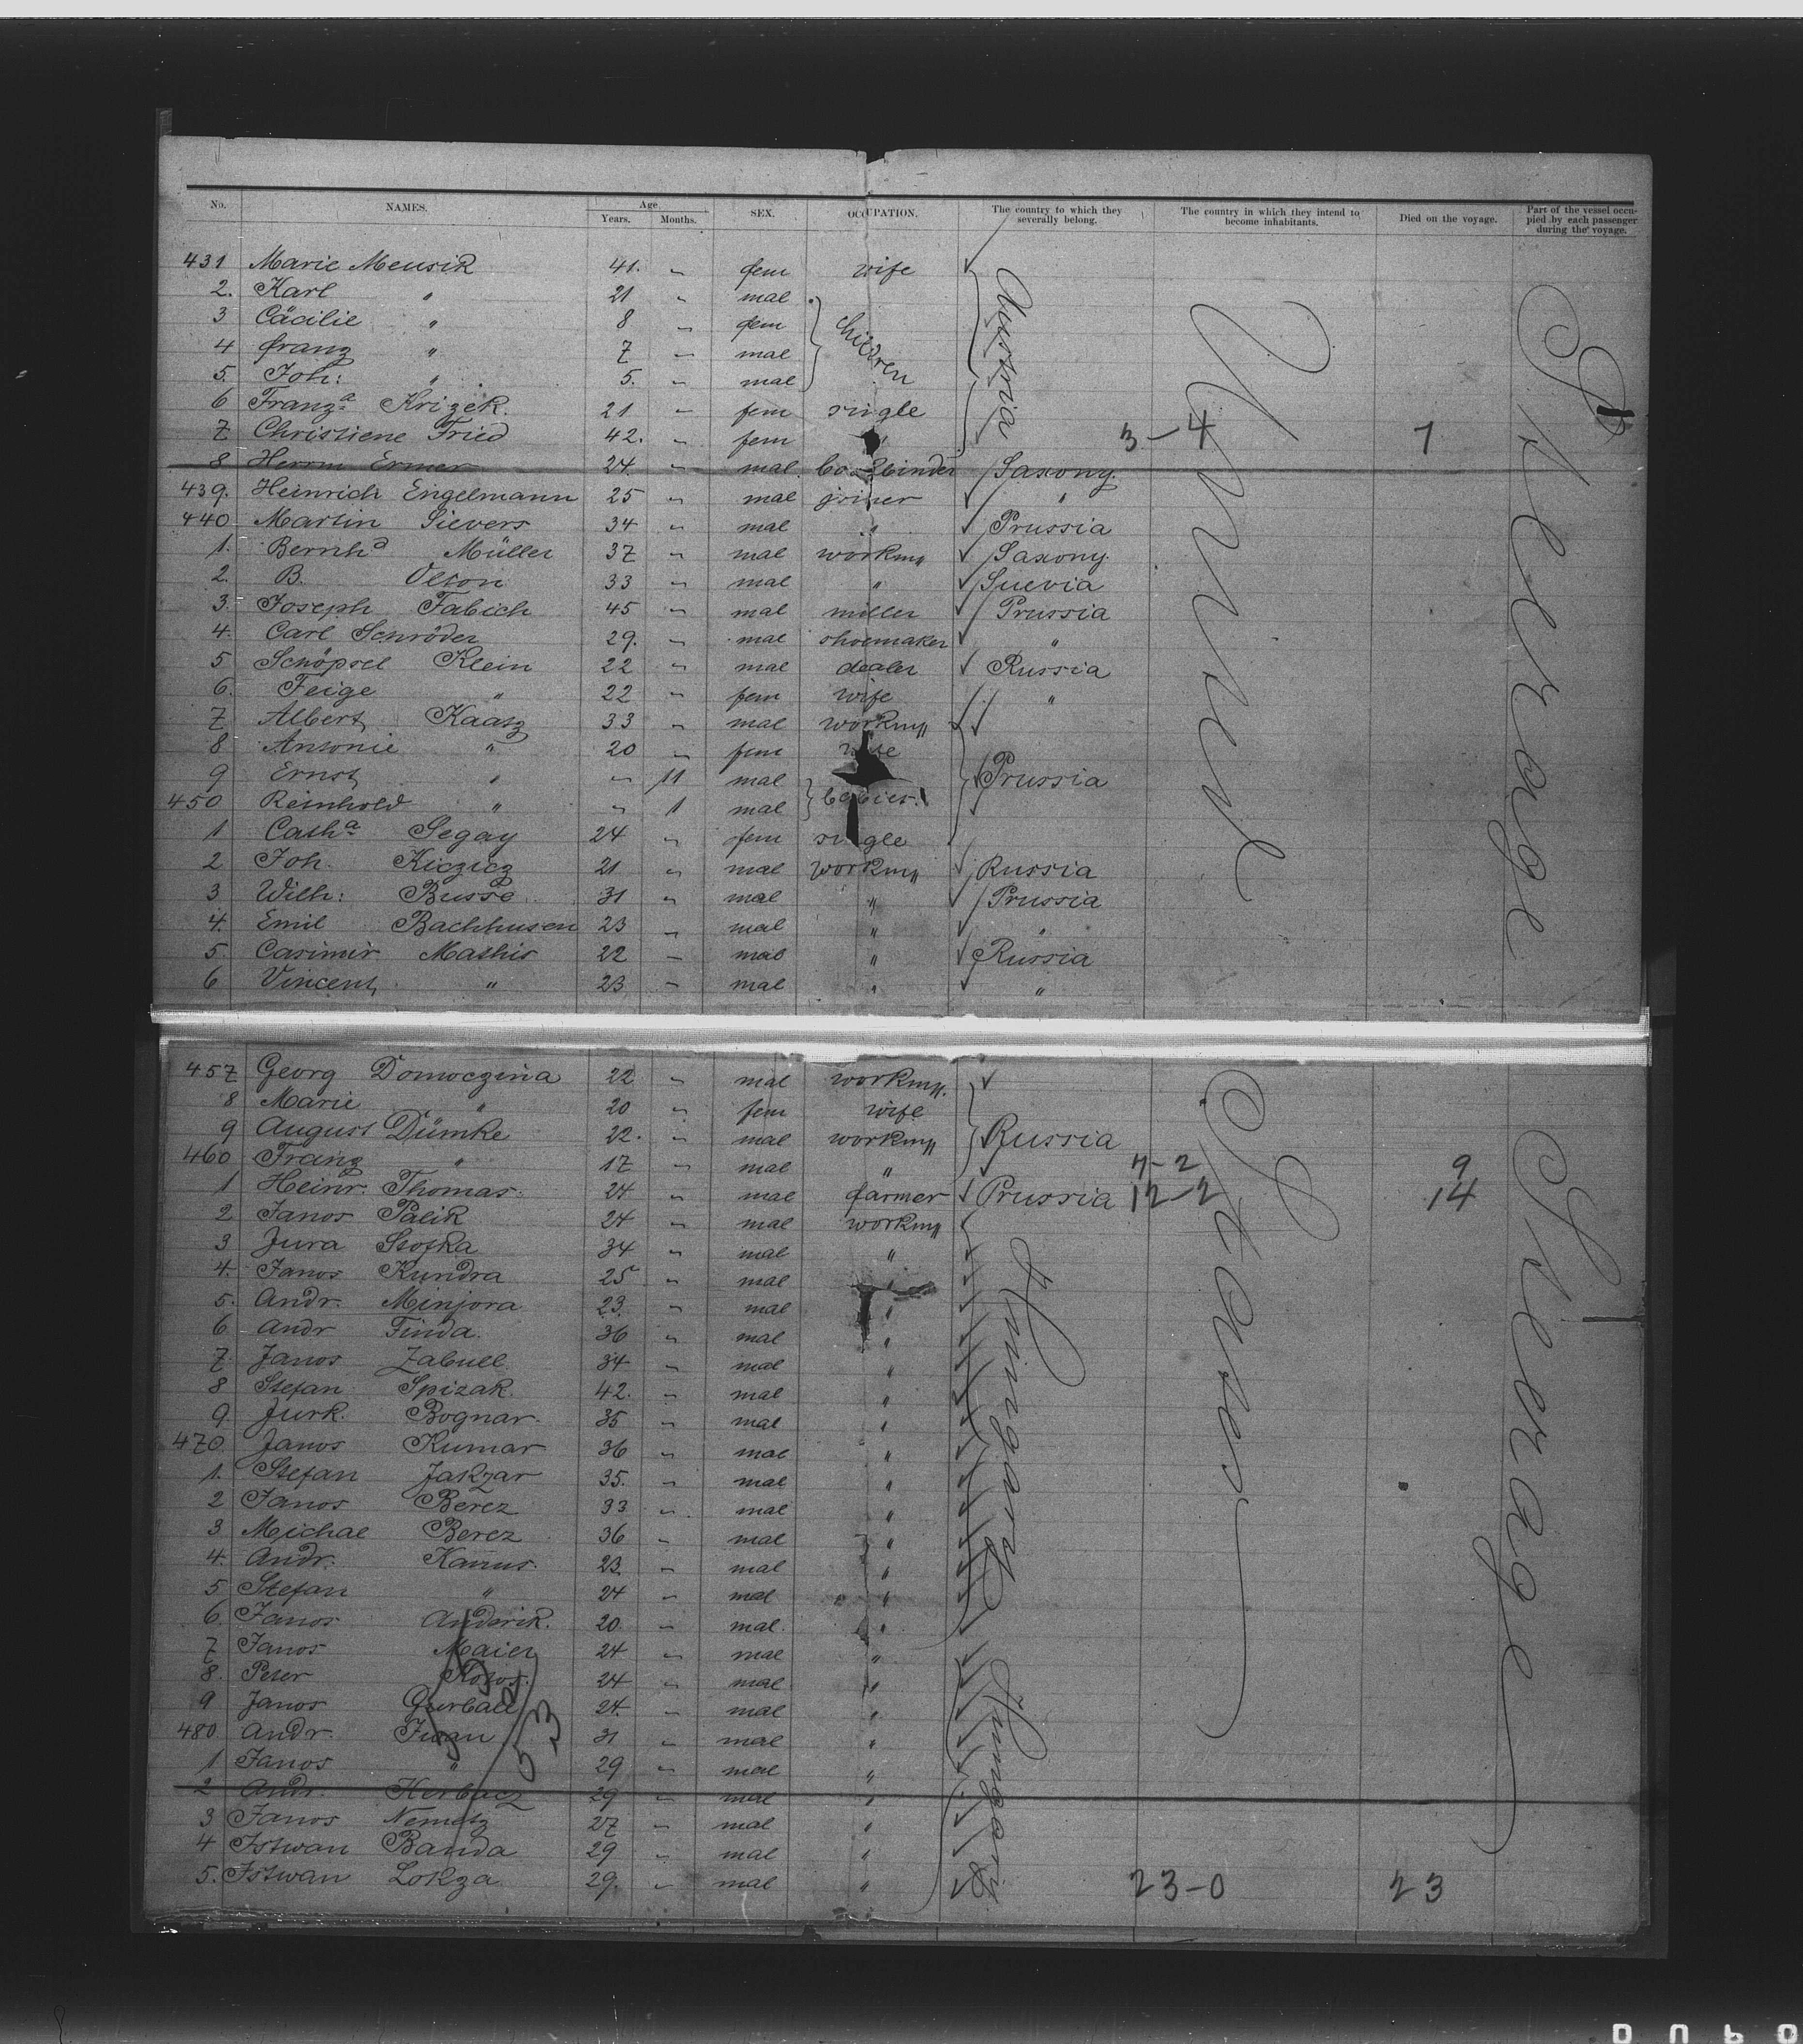 No. NAMES. Age Years. Months. SEX. OCCUPATION. The country to which they severally belong. The country in which they intend to become inhabitants. Died on the voyage. Part of the vessel occupied by each passenger during the voyage.
431 Marie Mensik 41. " fem wife
2. Karl " 21 " mal
3 Cäcilie " 8 " fem children Austria
4 Franz " 7 " mal
5. Joh: " 5. " mal
6 Franz.a Krizek. 21 " fem single
7 Christiene Fried 42. " fem " 3-4 7
8 Herrm Ermer 24. " mal bookbinder Saxony.
439. Heinrich Engelmann 25 " mal joiner "
440 Martin Sievers 34 " mal " Prussia
1. Bernhd Müller 37 " mal workm Saxony
2. B. Olson 33 " mal " Suevia
3. Joseph Fabich 45 " mal miller Prussia
4. Carl Schröder 29. " mal shoemaker "
5 Schöpsel Klein 22 " mal dealer Russia
6. Feige " 22 " fem wife "
7 Albert Kaatz 33 " mal workm
8 Antonie " 20 " fem wife
9 Ernst " " 11 mal Prussia
450 Reinhold " " 1 mal babies
1 Catha Segay 24 " fem single
2 Joh. Kiczicz 21 " mal workm Russia
3 Wilh: Busse 31 " mal " Prussia
4. Emil Bachhusen 23 " mal " "
5. Casimir Mathis 22 " mal " Russia
6 Vincent " 23 " mal " "
United
Steerage
457 Georg Domoczina 22 " mal workm.
8 Marie " 20 " fem wife
9 August Dümke 22. " mal workm Russia
460 Franz " 17 " mal " 7-2 9
1 Heinr. Thomas. 24 " mal farmer Prussia 12-2 14
2 Janos Palik 24 " mal workm
3 Jura Stofka 34 " mal "
4. Janos Kundra 25 " mal "
5. Andr. Minjora 23. " mal "
6. Andr Finda. 36 " mal "
7. Janos Zabuel 34 " mal "
8 Stefan Spizak. 42. " mal "
9. Jurk. Bognar. 35 " mal "
470. Janos Kumar 36 " mal "
1. Stefan Jakzar 35. " mal "
2 Janos Berez 33 " mal "
3 Michae Berez 36 " mal "
4. Andr. Kanus. 23. " mal "
5 Stefan " 24 " mal "
6. Janos Andrik. 20. " mal. "
Hungary
7 Janos Maier 24 " mal "
8. Peter 24 " mal "
9 Janos 24. " mal "
480 Andr. Iwan 31 " mal "
1 Janos " 29 " mal "
2 Andr. Horbacz 29 " mal "
3 Janos Nemetz 27 " mal "
4 Istwan Banda 29 " mal "
5. Istwan Lokza 29. " mal " 23-0 23
Hungary
States
Steerage